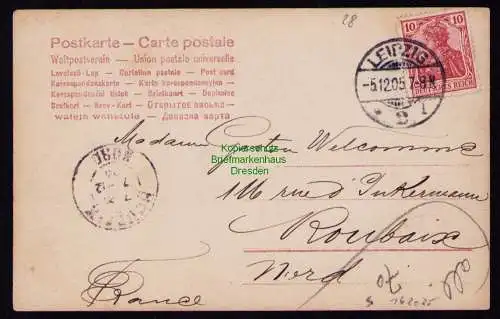 28
Postkarte – Carte postale
Weltpostverein – Union postale universelle
Levelező-Lap – Cartolina postale – Post card
Korrespondenzkarte – Karta korespondencyjna
Korespondenční lístek – Briefkaart – Dopisnice
Brefkort – Brev-Kort – Открытое письмо
Дописна карта
10 10
DEUTSCHES REICH
LEIPZIG
-5.12.05.
2
Kopierschutz
Briefmarkenhaus
Dresden
Madame Gaston Welcomme
116 rue d'Inkermann
Roubaix
Nord
France
NORD